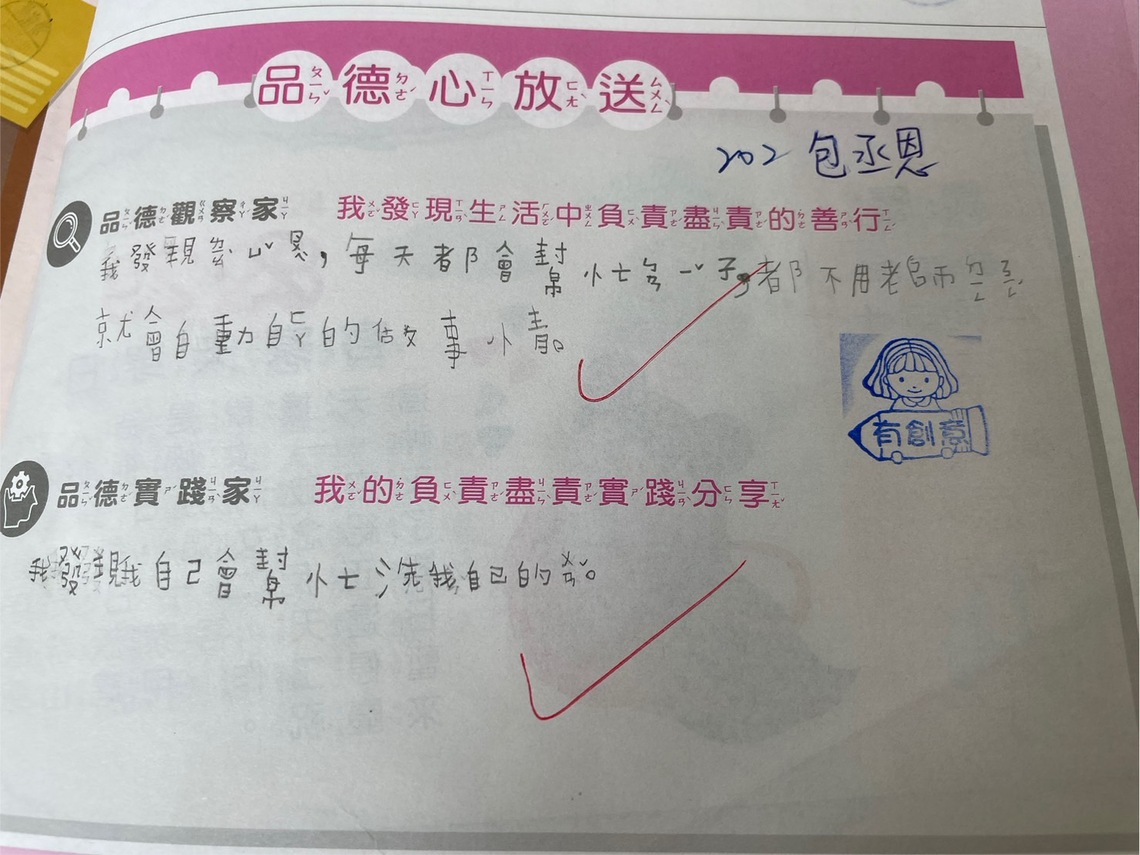 品德心放送
202 包丞恩
品德觀察家 我發現生活中負責盡責的善行
我發現 恩,每天都會幫忙 子,都不用老師
就會自動自 的做事情。
有創意
品德實踐家 我的負責盡責實踐分享
我發現我自己會幫忙洗我自己的